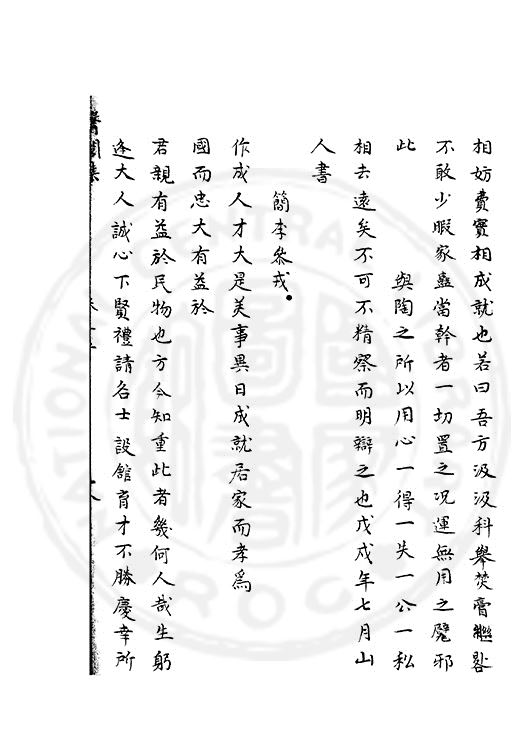 相妨費實相成就也若曰吾方汲汲科舉焚膏繼晷
不敢少暇家蠱當幹者一切置之况運無用之甓邪
此　　　　與陶之所以用心一得一失一公一私
相去遠矣不可不精察而明辯之也戊戌年七月山
人書
簡李叅戎
作成人才大是美事異日成就居家而孝為
國而忠大有益於
君親有益於民物也方今知重此者幾何人哉生躬
逢大人誠心下賢禮請各士設館育才不勝慶幸所